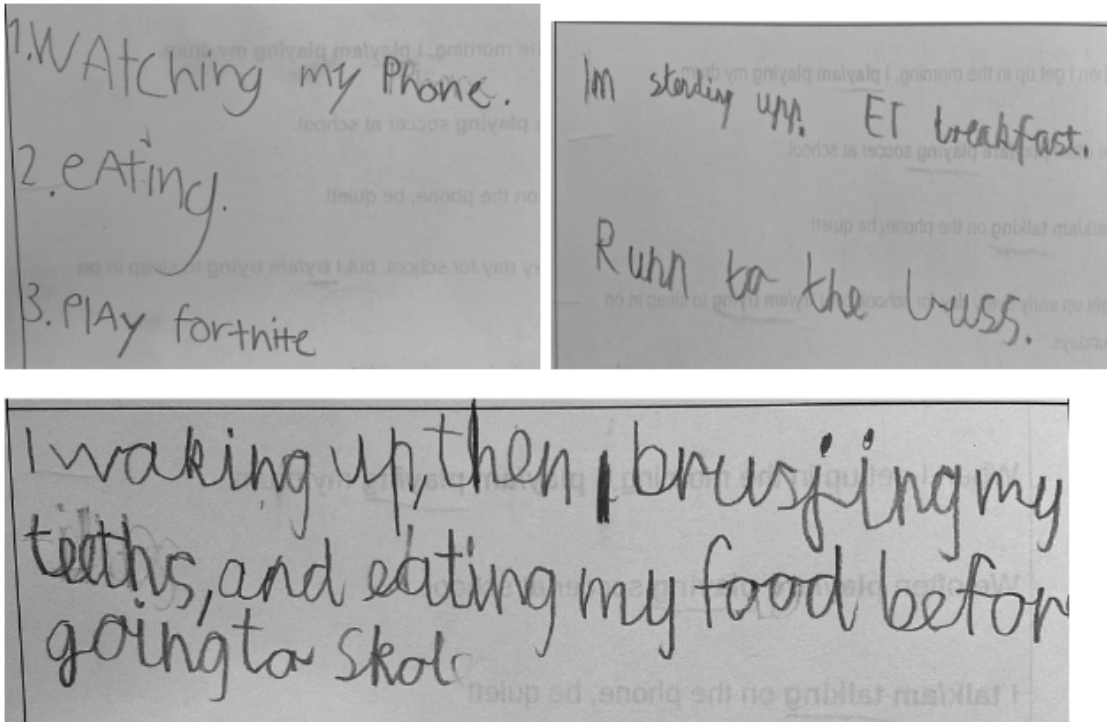 1. WAtching my Phone.
2. eAting.
3. PlAy fortnite
Im standing upp. ET breakfast.
Runn to the buss.
I waking up, then I brusjing my
teeths, and eating my food befor
going to skole